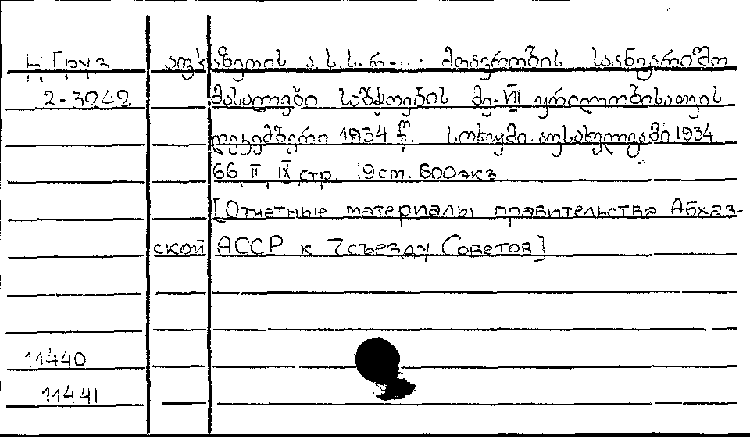 Н Груз აფხაზეთის ა.ს.ს.რ. მთავრობის საანგარიშო
2-3242 მასალები საბჭოების მე-VII ყრილობისათვის
დეკემბერი 1934 წ. სოხუმი. 1934
66, II, IX стр. 19 ст. 600 экз
[Отчетные материалы правительства Абхаз-
ской АССР к 7 съезду Советов]
11440
11441